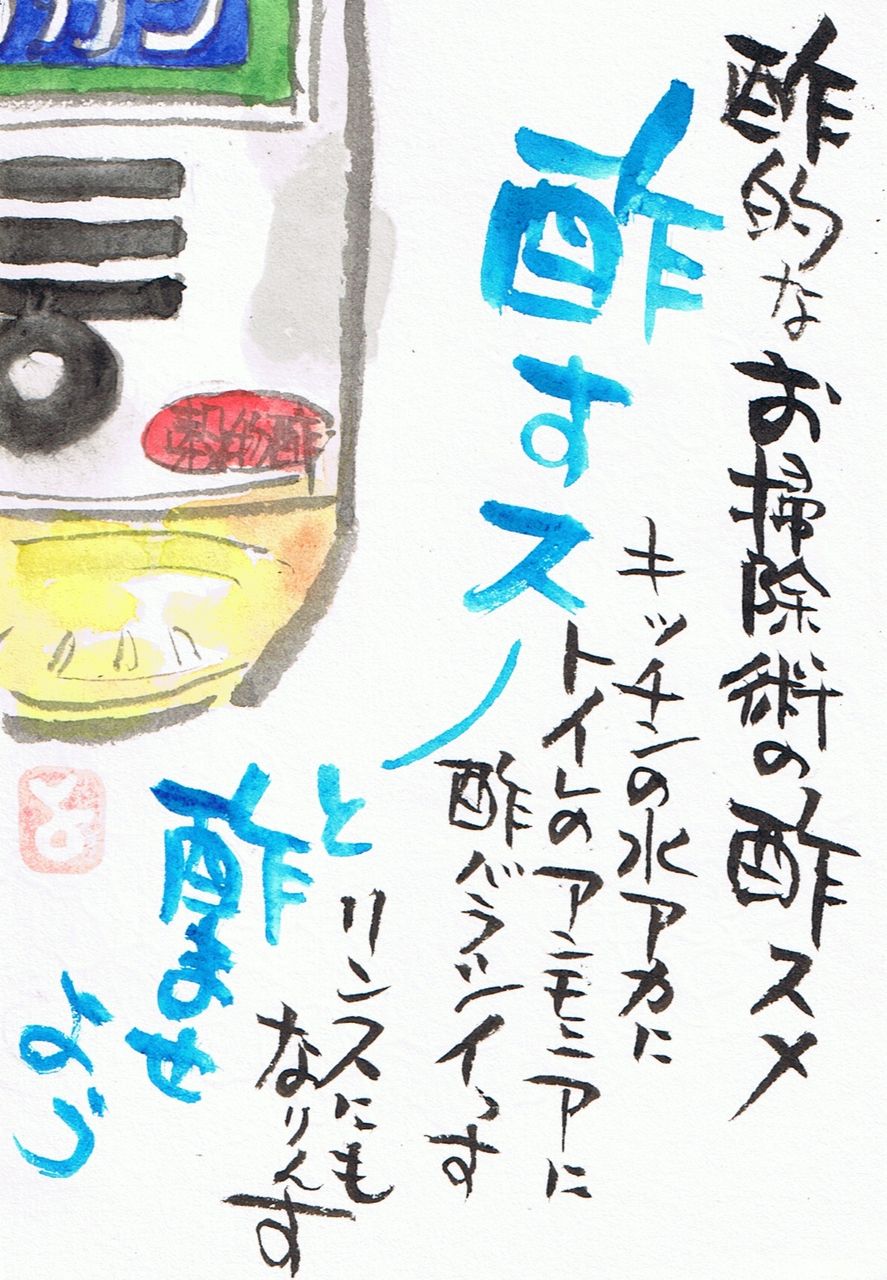 酢的なお掃除術の酢スメ
キッチンの水アカに
トイレのアンモニアに
酢バラツイっす
酢すスーと
リンスにも
なりんす
酢ませ
よう
カン
穀物酢